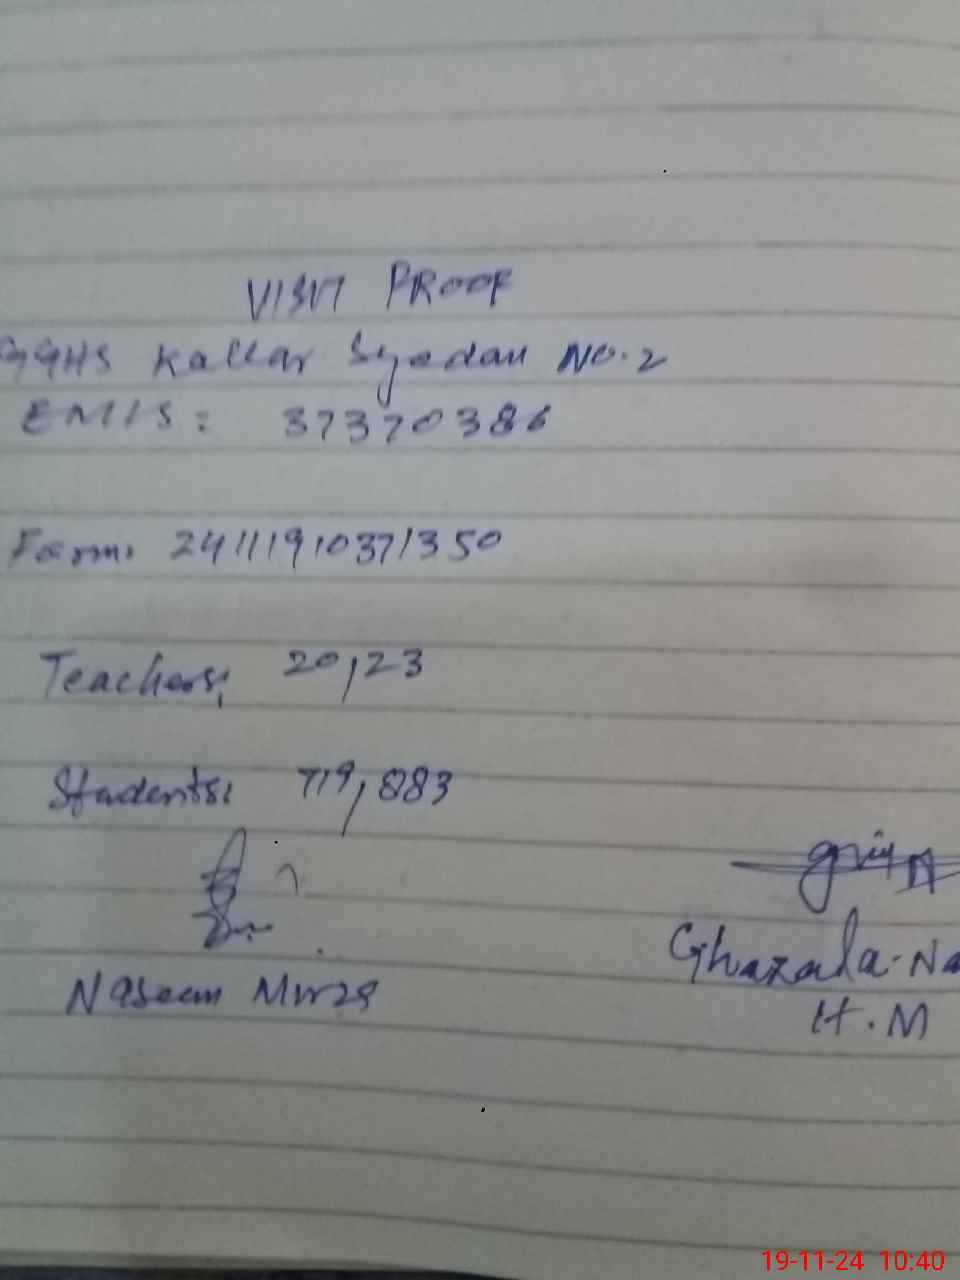 VISIT PROOF
GGHS Kallar Syedan NO.2
EMIS: 37370386
Form: 24111910371350
Teachers: 20,23
Students: 719,883
Naseem Mirza
Ghazala-Na
H.M
19-11-24 10:40